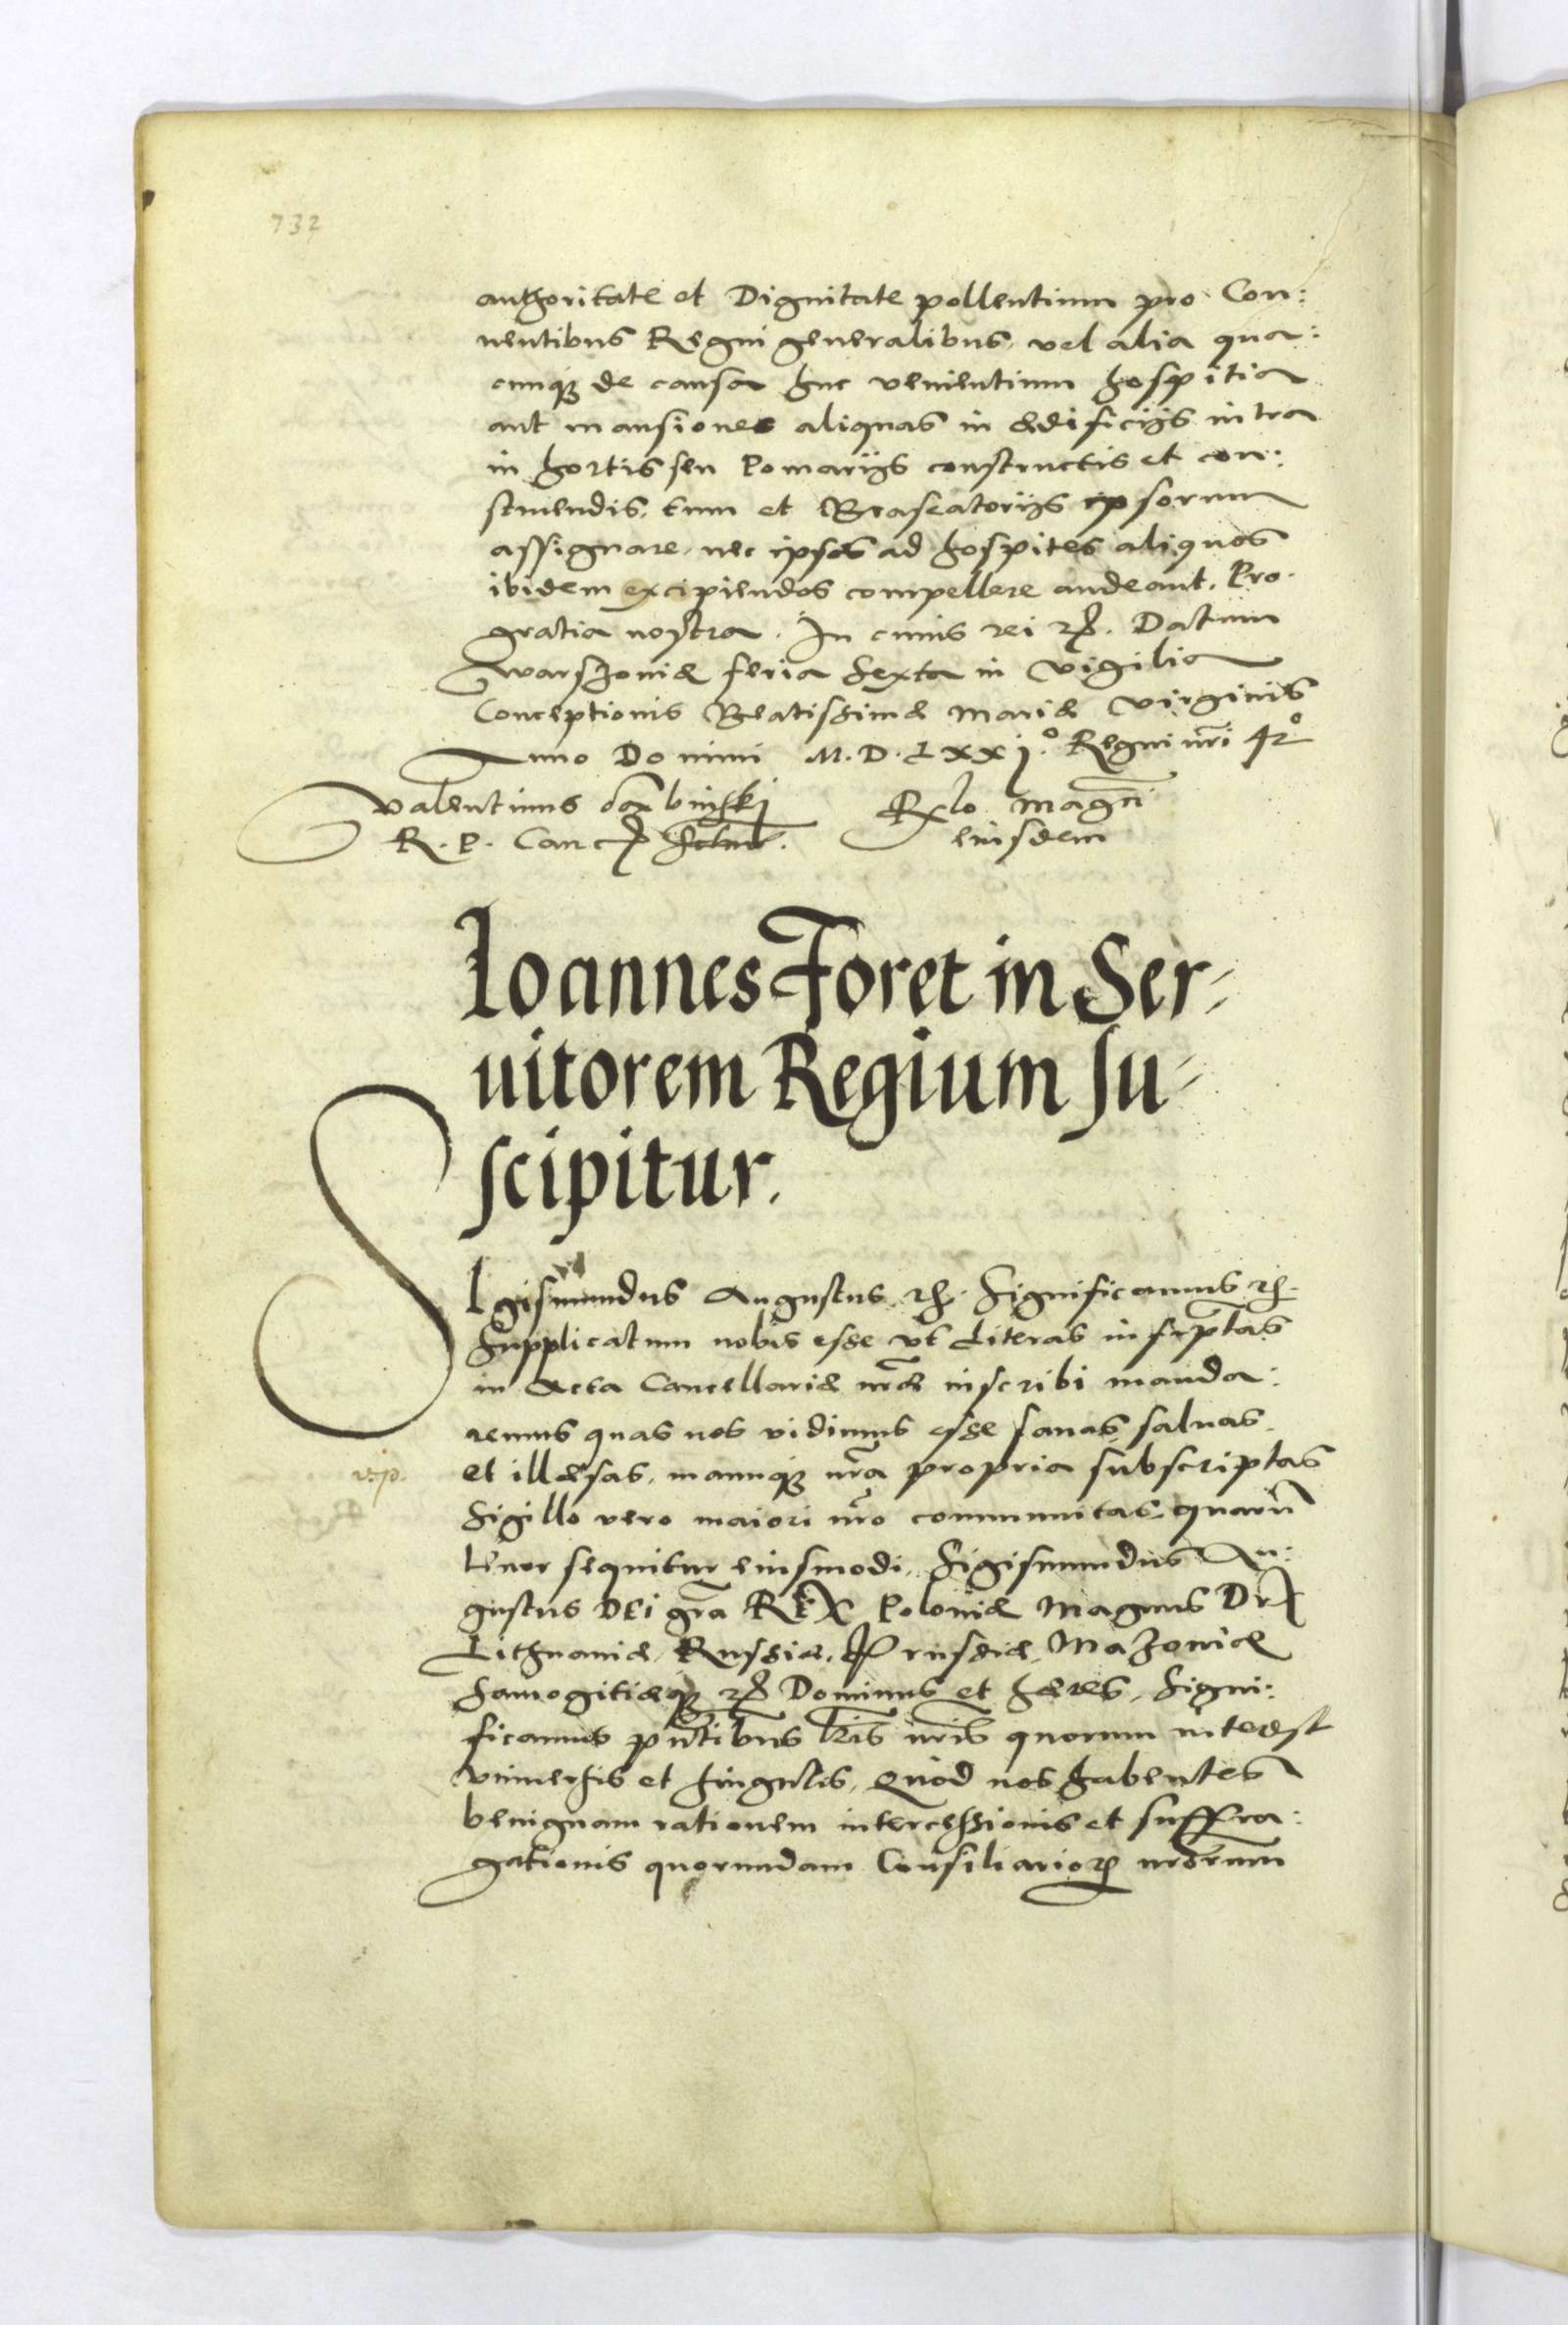 732
authoritate et Dignitate pollentium pro Con:
uentibus Regni generalibus, vel alia qua:
cunq; de causa huc venientium hospitia
aut mansiones aliquas in ædificijs intra
in hortis seu Pomarijs constructis et con:
struendis, tum et Braseatorijs ipsorum
assignare, nec ipsos ad hospites aliquos
ibidem excipiendos compellere audeant. Pro
gratia nostra. In cuius rei etc. Datum
Warszouiæ feria Sexta in Vigilia
Conceptionis Beatissimæ Mariæ Virginis
Anno Domini M.D.LXXI.º Regni nr̃i 42º
Valentinus Dãbinskj
R. P. Canc
Rlo Magnĩ
eiusdem
Ioannes Foret in Ser⸗
uitorem Regium su⸗
scipitur.
SIgismundus Augustus etc. Significamus etc.
Supplicatum nobis esse vt Literas infrapt̃as
in Acta Cancellariæ nr̃æ inscribi manda:
remus quas nos vidimus esse sanas, saluas
et illæsas, manuq; nr̃a propria subscriptas
Sigillo vero maiori nr̃o communitas, quarũ
tenor sequitur eiusmodi. Sigismundus Au:
gustus Dei gr̃a REX Poloniæ Magnus Dux
Lithuaniæ, Russiæ, Prussiæ, Mazouiæ
Samogitiæq; etc Dominus et hæres, Signi:
ficamus pñtibus lr̃is nr̃is quorum interest
vniuersis et singulis, Quod nos habentes
benignam rationem intercessionis et suffra:
gationis quorundam Consiliarioꝝ nr̃orum